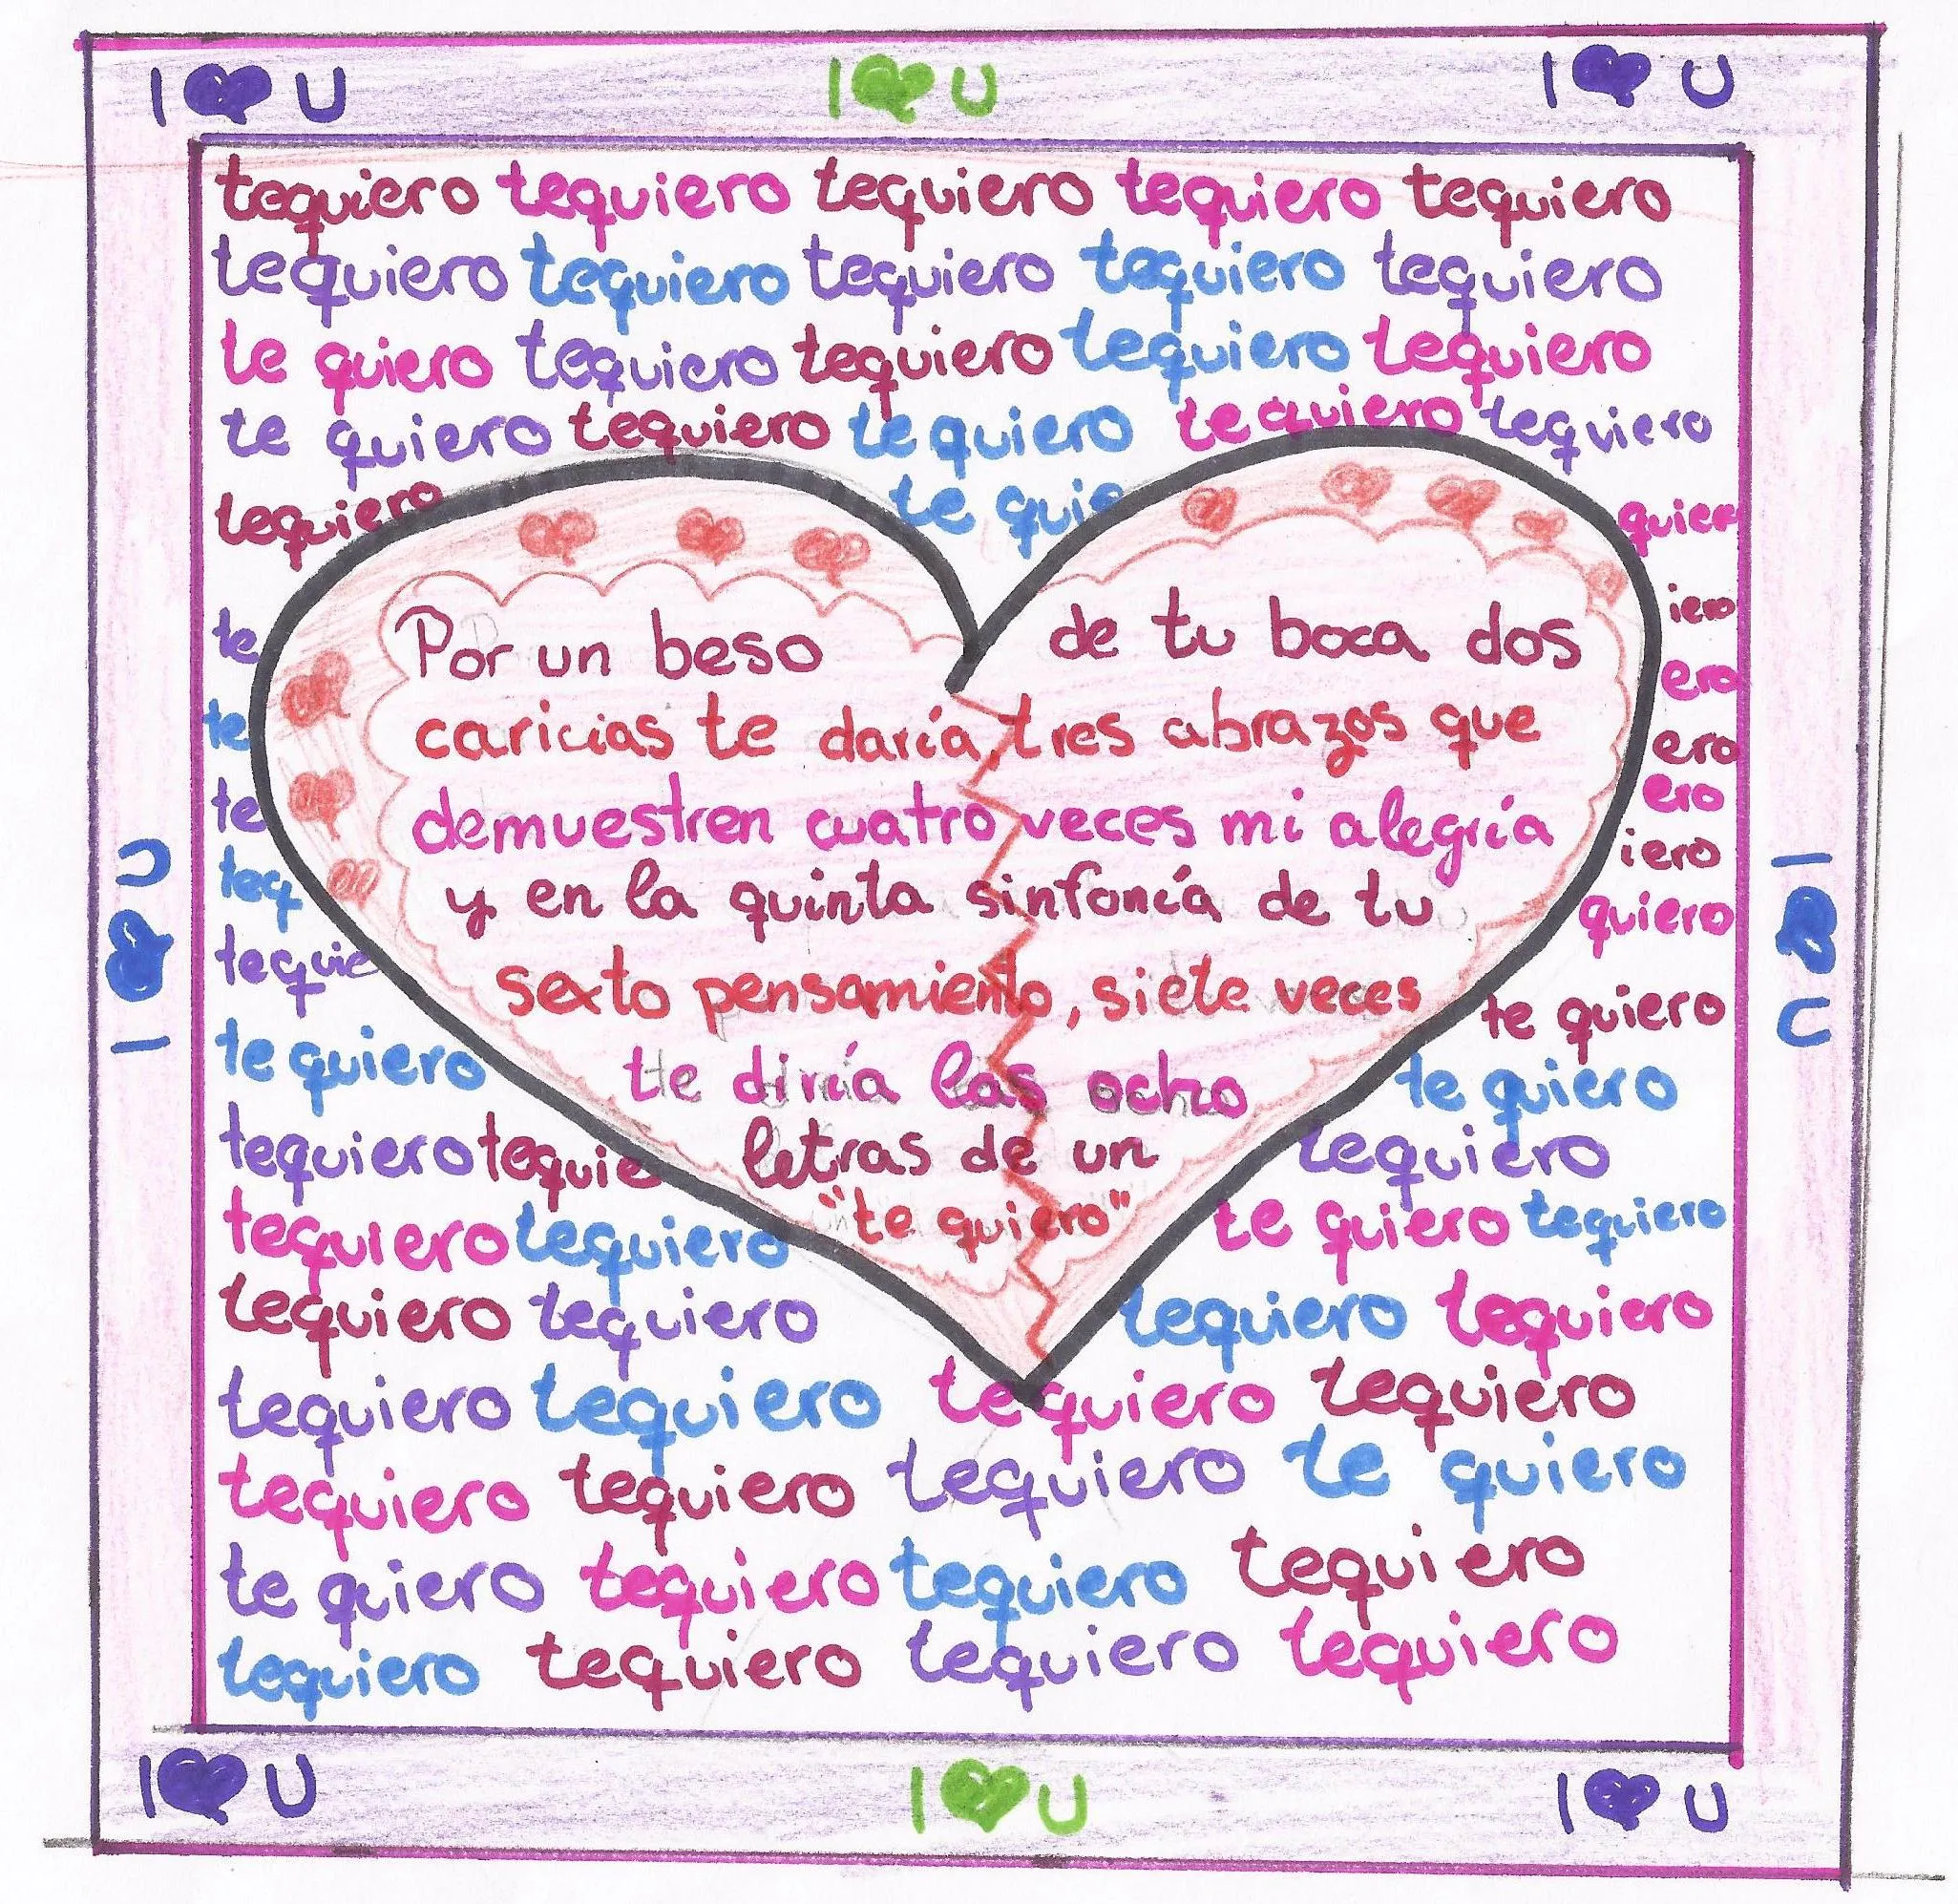 I ❤ U I ❤ U I ❤ U
tequiero tequiero tequiero tequiero tequiero
tequiero tequiero tequiero tequiero tequiero
te quiero tequiero tequiero tequiero tequiero
te quiero tequiero te quiero te quiero tequiero
tequiero te quie quier
te iero
te ero
te ero
ero
teq iero
tequie quiero
te quiero te quiero
te quiero
tequiero tequie tequiero
tequiero tequiero te quiero tequiero
tequiero tequiero tequiero tequiero
tequiero tequiero tequiero tequiero
tequiero tequiero tequiero te quiero
te quiero tequiero tequiero tequiero
tequiero tequiero tequiero tequiero
Por un beso de tu boca dos
caricias te daría, tres abrazos que
demuestren cuatro veces mi alegría
y en la quinta sinfonía de tu
sexto pensamiento, siete veces
te diría las ocho
letras de un
"te quiero"
I ❤ U
I ❤ U
I ❤ U I ❤ U I ❤ U